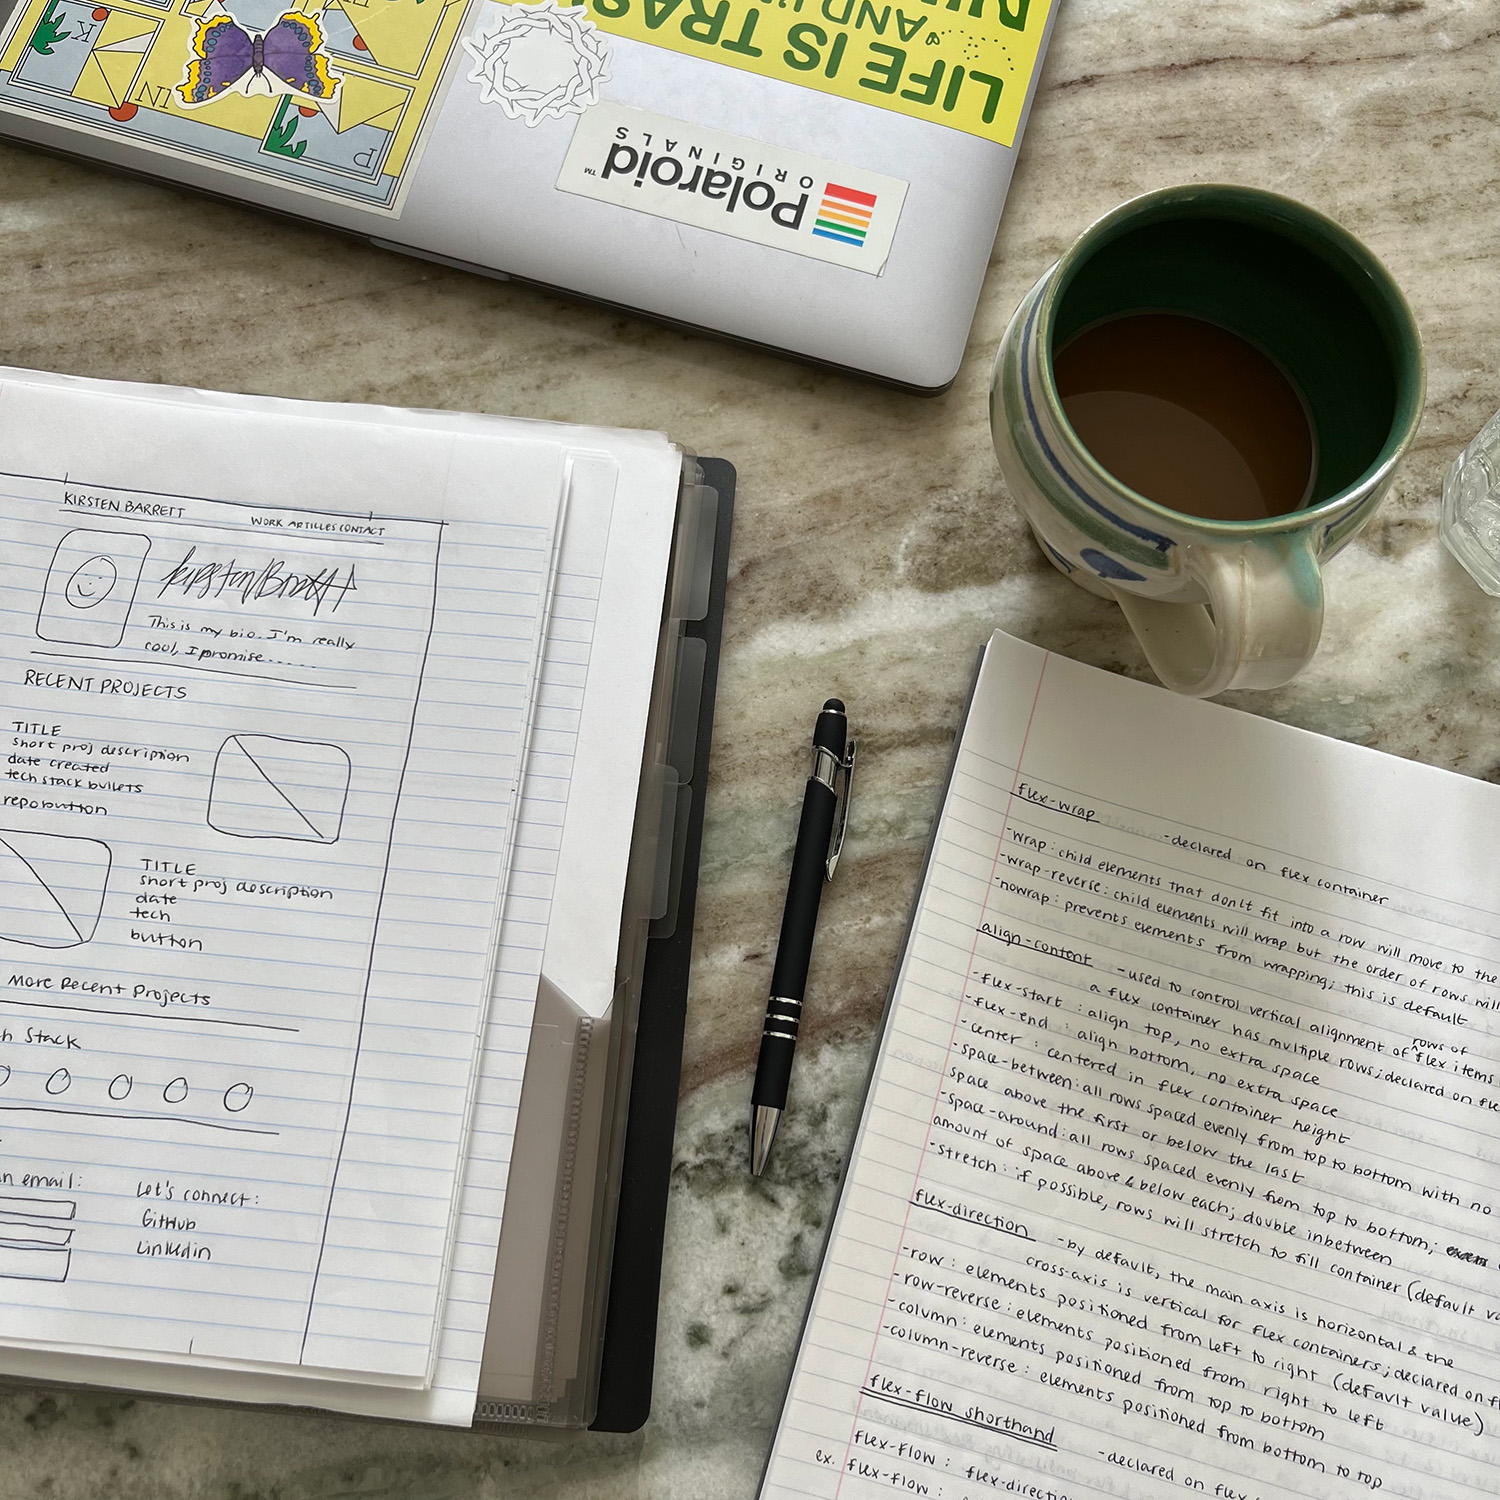 LIFE IS TRASH
AND I'
Polaroid™
ORIGINALS
K
IN
P
KIRSTEN BARRETT
WORK ARTICLES CONTACT
Kirsten Barrett
This is my bio. I'm really
cool, I promise.....
RECENT PROJECTS
TITLE
short proj description
date created
tech stack bullets
repo button
TITLE
short proj description
date
tech
button
More Recent Projects
h Stack
n email:
Let's connect:
GitHub
LinkedIn
flex-wrap
-declared on flex container
-wrap: child elements that don't fit into a row will move to the
-wrap-reverse: child elements will wrap but the order of rows will
-nowrap: prevents elements from wrapping; this is default
align-content
-used to control vertical alignment of rows of flex items
a flex container has multiple rows; declared on fle
-flex-start : align top, no extra space
-flex-end : align bottom, no extra space
-center : centered in flex container height
-space-between: all rows spaced evenly from top to bottom with no
space above the first or below the last
-space-around: all rows spaced evenly from top to bottom;
amount of space above & below each; double inbetween
-stretch: if possible, rows will stretch to fill container (default va
flex-direction
-by default, the main axis is horizontal & the
cross-axis is vertical for flex containers; declared on fl
-row: elements positioned from left to right (default value)
-row-reverse: elements positioned from right to left
-column: elements positioned from top to bottom
-column-reverse: elements positioned from bottom to top
flex-flow shorthand
-declared on flex
flex-flow: flex-directio
ex. flex-flow: